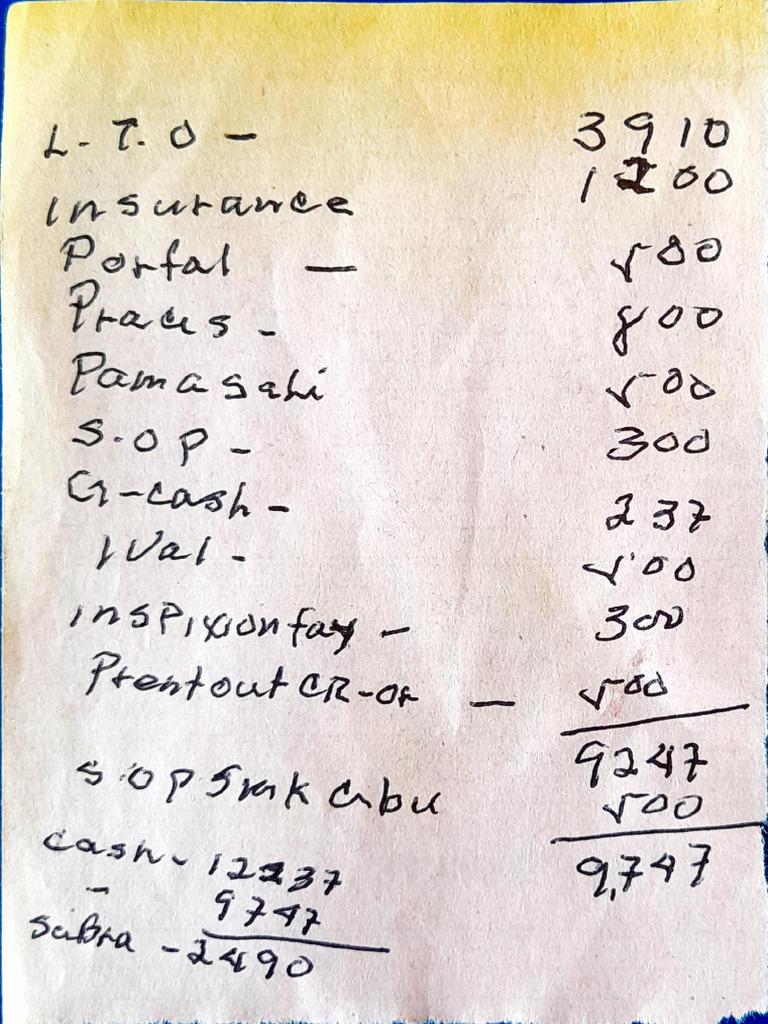 L.T.O - 3910
Insurance 1200
Portal - 500
Praces - 800
Pamasahi 500
S.O.P - 300
G-cash - 237
IVal - 500
inspixion fay - 300
Prentout CR-OR - 500
9247
S.O.P Smk Cebu 500
9,747
cash - 12237
- 9747
Subra - 2490